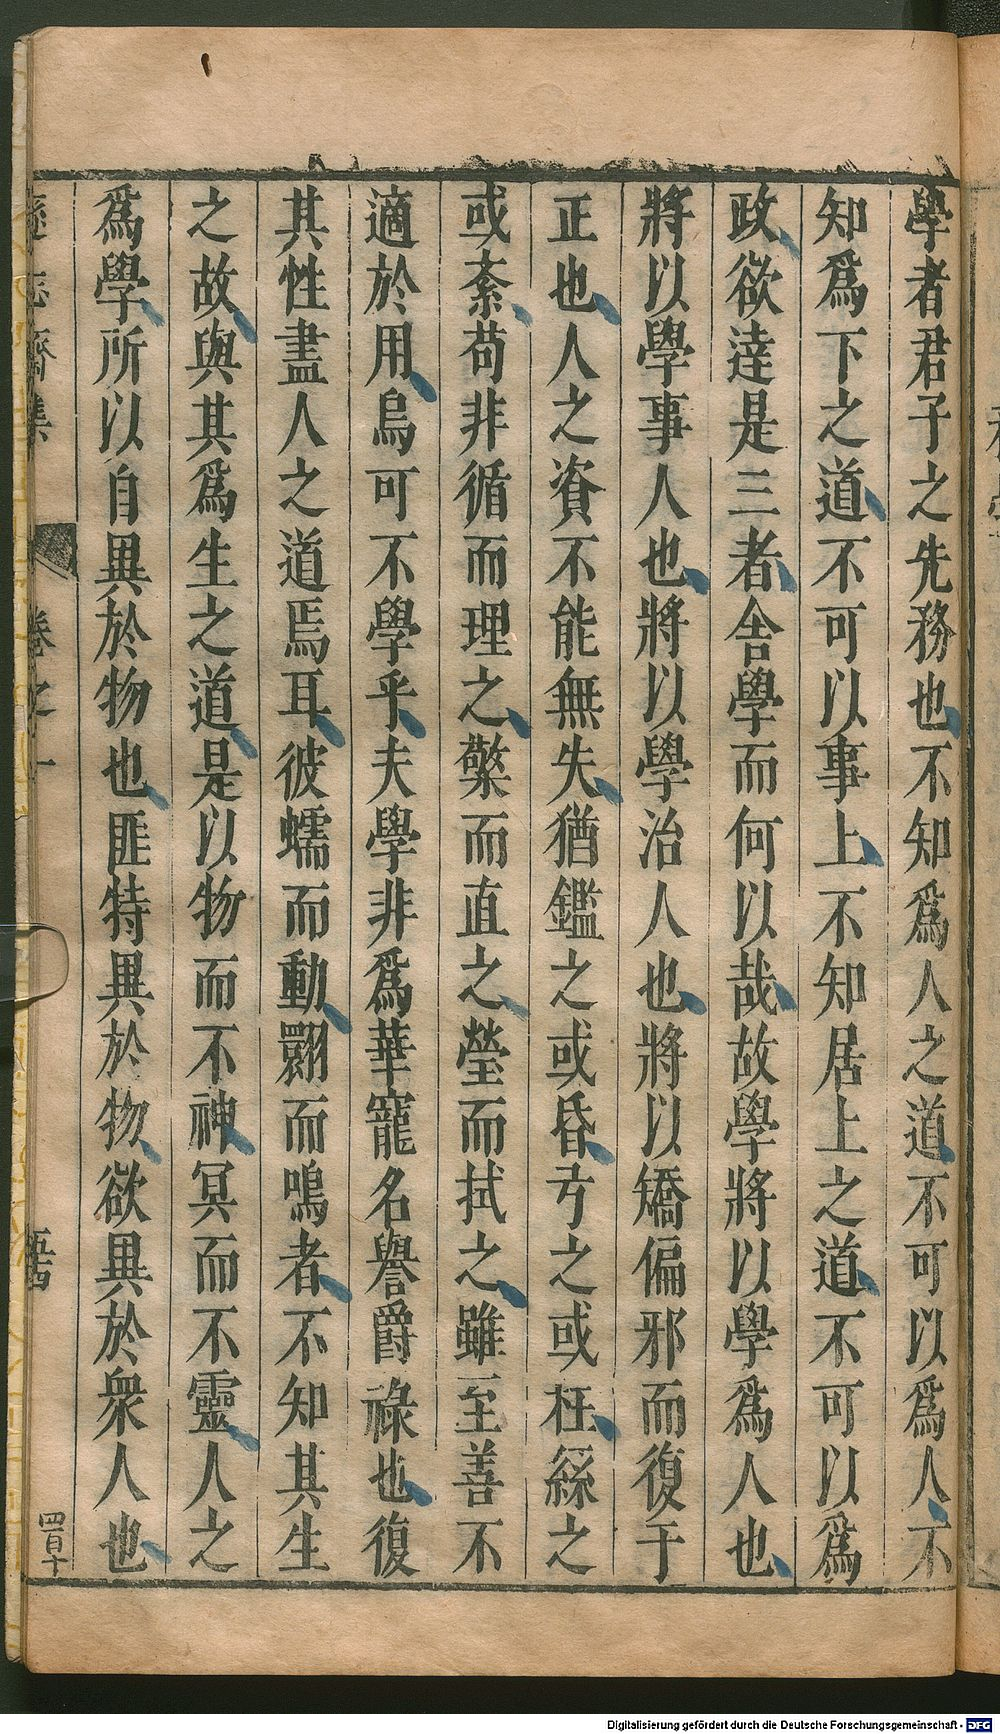 學者君子之先務也不知爲人之道不可以爲人不
知爲下之道不可以事上不知居上之道不可以爲
政欲逹是三者舍學而何以哉故學將以學爲人也
將以學事人也將以學治人也將以矯偏邪而復于
正也人之資不能無失猶鑑之或昏弓之或枉絲之
或紊苟非循而理之檠而直之瑩而拭之雖至善不
適於用烏可不學乎夫學非爲華寵名譽爵祿也復
其性盡人之道焉耳彼蠕而動翾而鳴者不知其生
之故與其爲生之道是以物而不神冥而不靈人之
爲學所以自異於物也匪特異於物欲異於衆人也
遜志齋集
卷之一
四百十
Digitalisierung gefördert durch die Deutsche Forschungsgemeinschaft - DFG